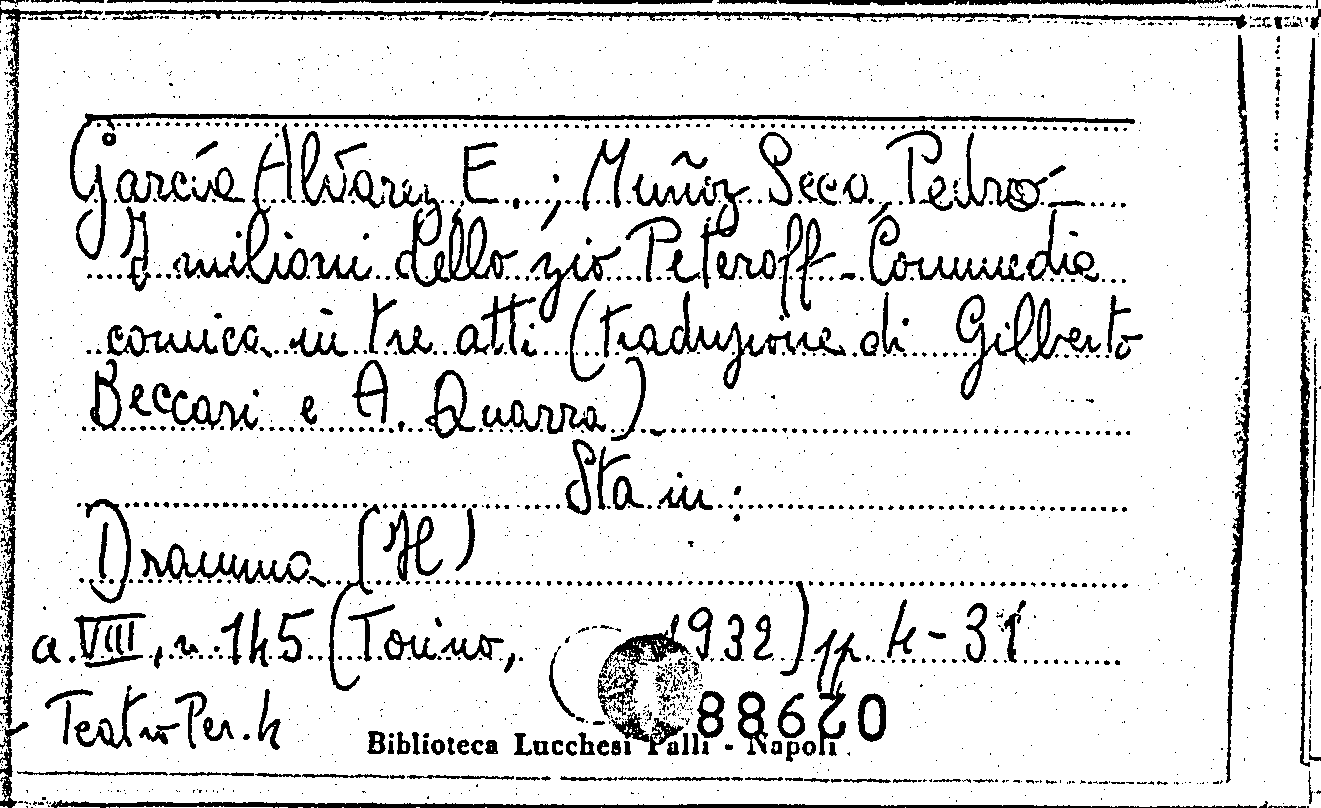 García Alvarez, E. ; Muñoz Seca, Pedro -
I milioni dello zio Peteroff - Commedia
comica in tre atti (traduzione di Gilberto
Beccari e A. Quarra) -
Sta in :
Dramma (Il)
a. VIII, n. 145 (Torino, 1932) pp. 4-31
Teatro Per. 4
88620
Biblioteca Lucchesi Palli - Napoli